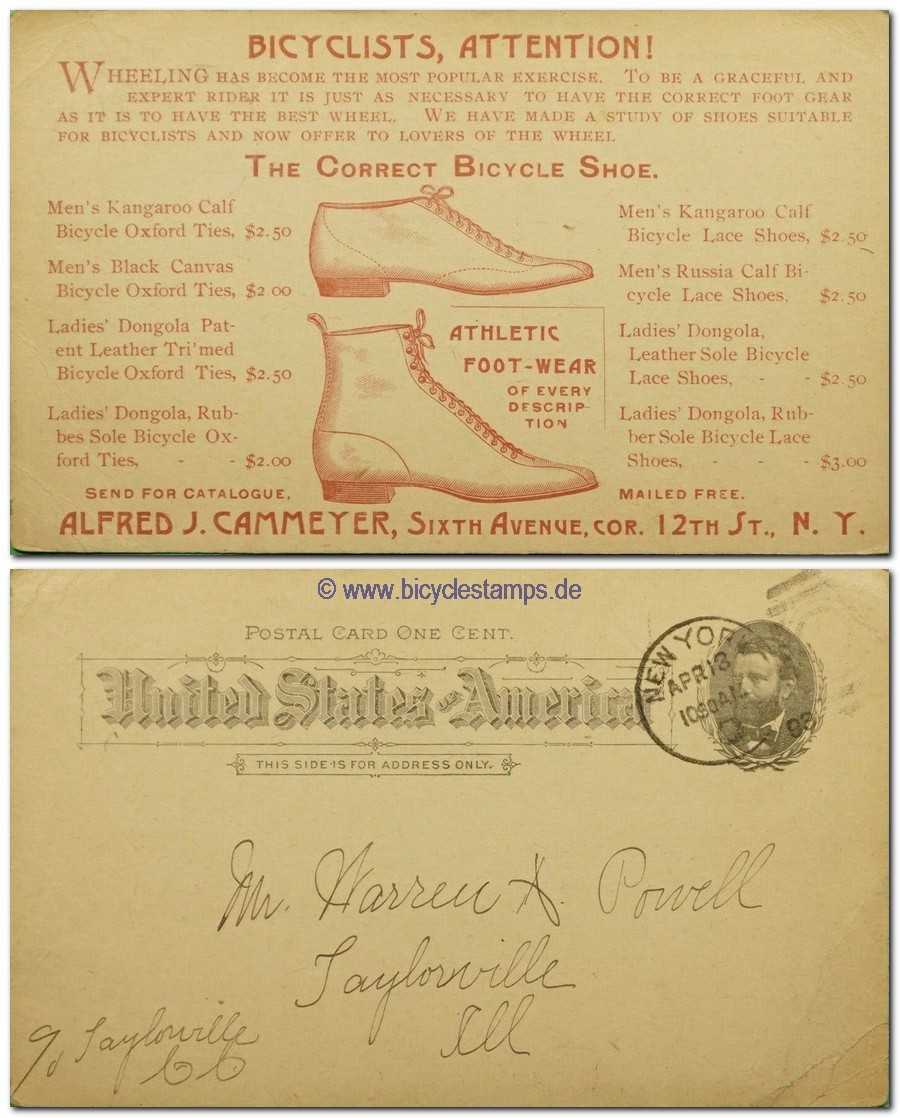 BICYCLISTS, ATTENTION!
WHEELING HAS BECOME THE MOST POPULAR EXERCISE. TO BE A GRACEFUL AND
EXPERT RIDER IT IS JUST AS NECESSARY TO HAVE THE CORRECT FOOT GEAR
AS IT IS TO HAVE THE BEST WHEEL. WE HAVE MADE A STUDY OF SHOES SUITABLE
FOR BICYCLISTS AND NOW OFFER TO LOVERS OF THE WHEEL
THE CORRECT BICYCLE SHOE.
Men's Kangaroo Calf
Bicycle Oxford Ties, $2.50
Men's Black Canvas
Bicycle Oxford Ties, $2 00
Ladies' Dongola Pat-
ent Leather Tri'med
Bicycle Oxford Ties, $2.50
Ladies' Dongola, Rub-
bes Sole Bicycle Ox-
ford Ties, - - $2.00
ATHLETIC
FOOT-WEAR
OF EVERY
DESCRIP-
TION
Men's Kangaroo Calf
Bicycle Lace Shoes, $2.50
Men's Russia Calf Bi-
cycle Lace Shoes, $2.50
Ladies' Dongola,
Leather Sole Bicycle
Lace Shoes, - - $2.50
Ladies' Dongola, Rub-
ber Sole Bicycle Lace
Shoes, - - - $3.00
SEND FOR CATALOGUE, MAILED FREE.
ALFRED J. CAMMEYER, SIXTH AVENUE, COR. 12TH ST., N. Y.
© www.bicyclestamps.de
POSTAL CARD ONE CENT.
United States of America
THIS SIDE IS FOR ADDRESS ONLY.
NEW YORK
APR 13
1030AM
D
Mr. Warren A. Powell
Taylorville
Ill
c/o Taylorville
C C